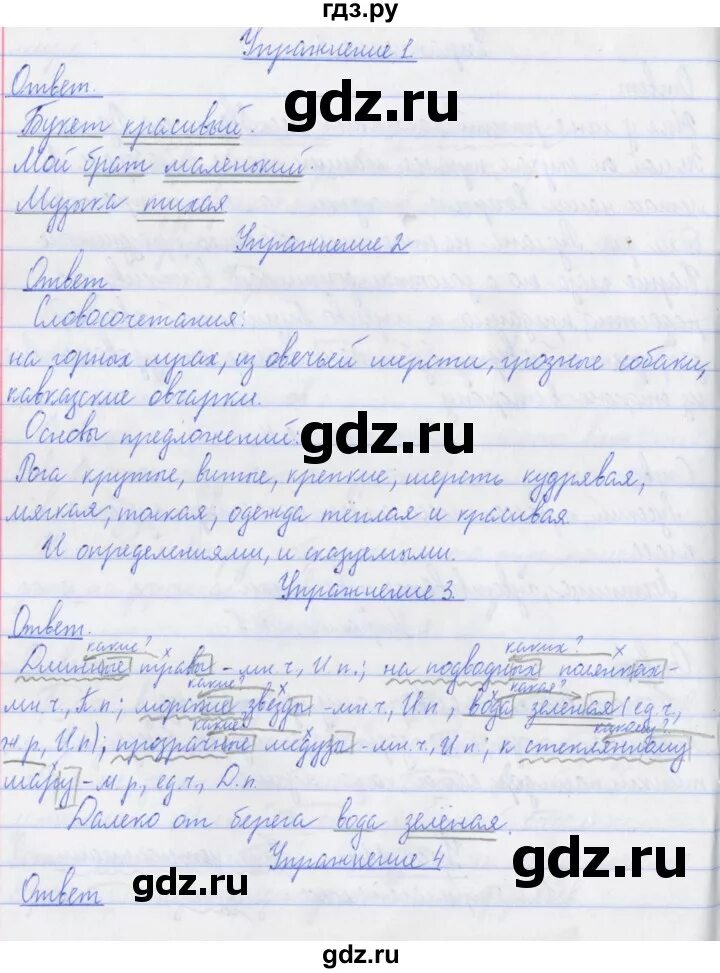 гдз.ру
Упражнение 1.
Ответ.
gdz.ru
Букет красивый.
Мой брат маленький
Музыка тихая
Упражнение 2
Ответ
Словосочетания:
на горных лугах, из овечьей шерсти, грозные собаки,
кавказские овчарки.
Основы предложений:
gdz.ru
Рога крутые, витые, крепкие, шерсть кудрявая,
мягкая, тонкая, одежда тёплая и красивая
И определениями, и сказуемыми.
Упражнение 3.
Ответ.
какие? каких?
Длинные травы - мн.ч., И.п.; на подводных полянках -
какие? какая?
мн.ч., П.п; морские звёзды - мн.ч, И.п, вода зелёная (ед.ч,
какие? какому?
ж.р, И.п); прозрачные медузы - мн.ч, И.п; к стеклянному
шару - м.р, ед.ч, Д.п.
Далеко от берега вода зелёная.
Упражнение 4
gdz.ru
gdz.ru
Ответ
gdz.ru